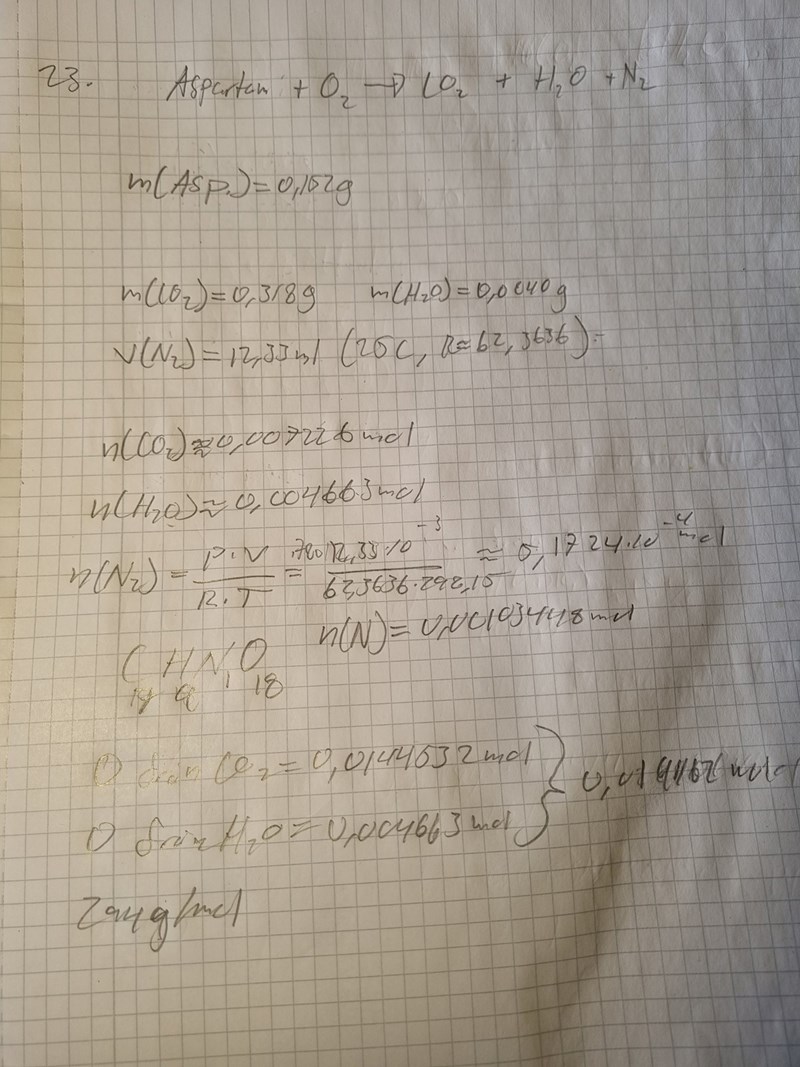 23. Aspartam + O₂ → CO₂ + H₂O + N₂
m(Asp.) = 0,152g
m(CO₂) = 0,318g m(H₂O) = 0,0840g
V(N₂) = 12,33ml (20C, R≈62,3636)
n(CO₂) ≈ 0,007226 mol
n(H₂O) ≈ 0,004663 mol
n(N₂) = P·V / R·T = 760·12,33·10⁻³ / 62,3636·292,15 ≈ 5,1724·10⁻⁴ mol
n(N) = 0,00103448 mol
C H N O
14 1 18
O from CO₂ = 0,0144532 mol
O from H₂O = 0,004663 mol
294g/mol